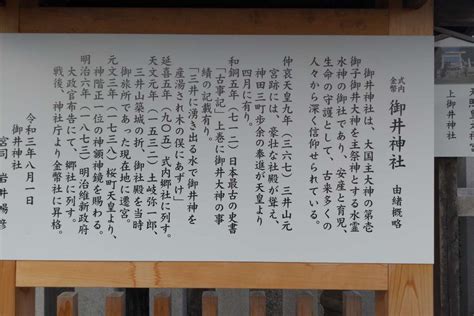 式内
金幣
御井神社 由緒概略
御井神社は、大国主大神の第壱
御子御井大神を主祭神とする水霊
水神の御社であり、安産と育児、
生命の守護として、古来多くの
人々から深く信仰せられている。
仲哀天皇九年(三六七)三井山元
宮跡には、豪壮な社殿が聳え、
神田三町歩余の奉進が天皇より
四月に有り。
和銅五年(七一二)日本最古の史書
「古事記」上巻に御井大神の事
績の記載有り。
「三井に湧き出る水で御井神を
産湯され木の俣にあずけ」
延喜五年(九〇五)式内郷社に列す。
天文元年(一五三二)土岐弥一郎、
三井山築城の折、御社殿を当時
御旅所であった現在地に遷宮。
元文三年(一七三八)桜町天皇より、
神階正一位の神額神鏡を賜わる。
明治六年(一八七三)明治維新政府
大政官布告にて、郷社に列す。
戦後、神社庁より金幣社に昇格。
令和三年八月一日
御井神社
宮司 岩井
上御井神社